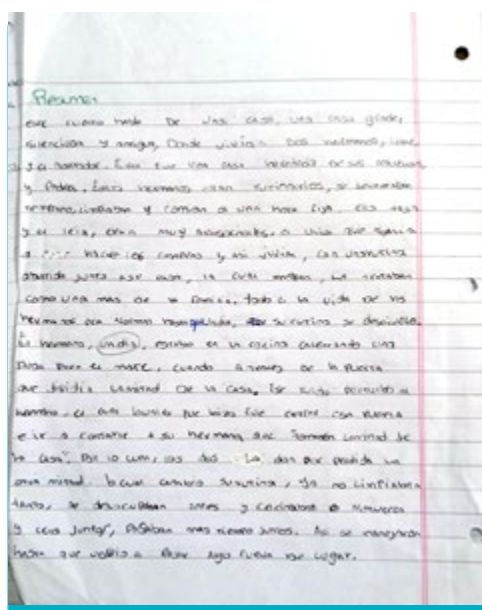 Resumen
este cuento habla De una casa, una casa grande,
silenciosa y antigua, Donde vivían Dos hermanos, Irene
y el narrador. Esta fue una casa de sus
y Padres, Estos hermanos eran rutinarios, se levantaban
temprano, limpiaban y comían a una hora fija. Ella tejía
y él leía, eran muy, lo único que
a él hacer las compras y así vivían, con
junto a su casa, la cual, la
como una más de la familia, toda la vida de los
hermanos era normal hasta que, su rutina se
El hermano, un día, estaba en la cocina calentando una
para el mate, cuando a través de la puerta
que dividía la mitad De la casa, Ese ruido
hombre, el cual lo único que hizo fue cerrar con puerta
e ir a contarle a su hermana que "tomaron la mitad de
la casa", Por lo cual, los dos La dan por perdida la
otra mitad. lo cual cambió su rutina, ya no limpiaban
tanto, se antes y cocinaban
y leían juntos, Pasaban más tiempo juntos. Así se
hasta que volvió a Pasar algo fuera de lugar.